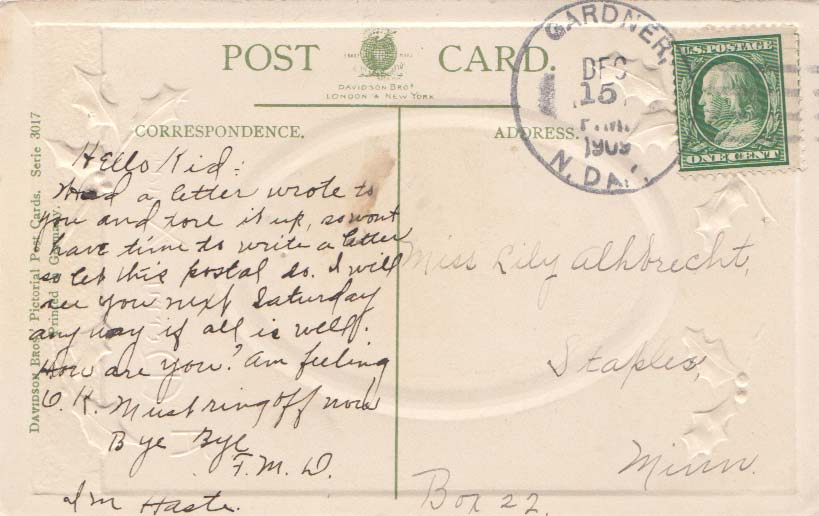 POST CARD.
DAVIDSON BROS
LONDON & NEW YORK
GARDNER,
DEC
15
1909
N. DAK.
U.S. POSTAGE
ONE CENT
DAVIDSON BROS' Pictorial Post Cards. Serie 3017
Printed in Germany.
CORRESPONDENCE.
Hello Kid:
Had a letter wrote to
you and tore it up, so wont
have time to write a letter
so let this postal do. I will
see you next Saturday
any way if all is well.
How are you? Am feeling
O.K. Must ring off now
Bye Bye
F.M.D.
In Haste.
ADDRESS.
Miss Lily Alhbrecht,
Staples,
Minn.
Box 22.